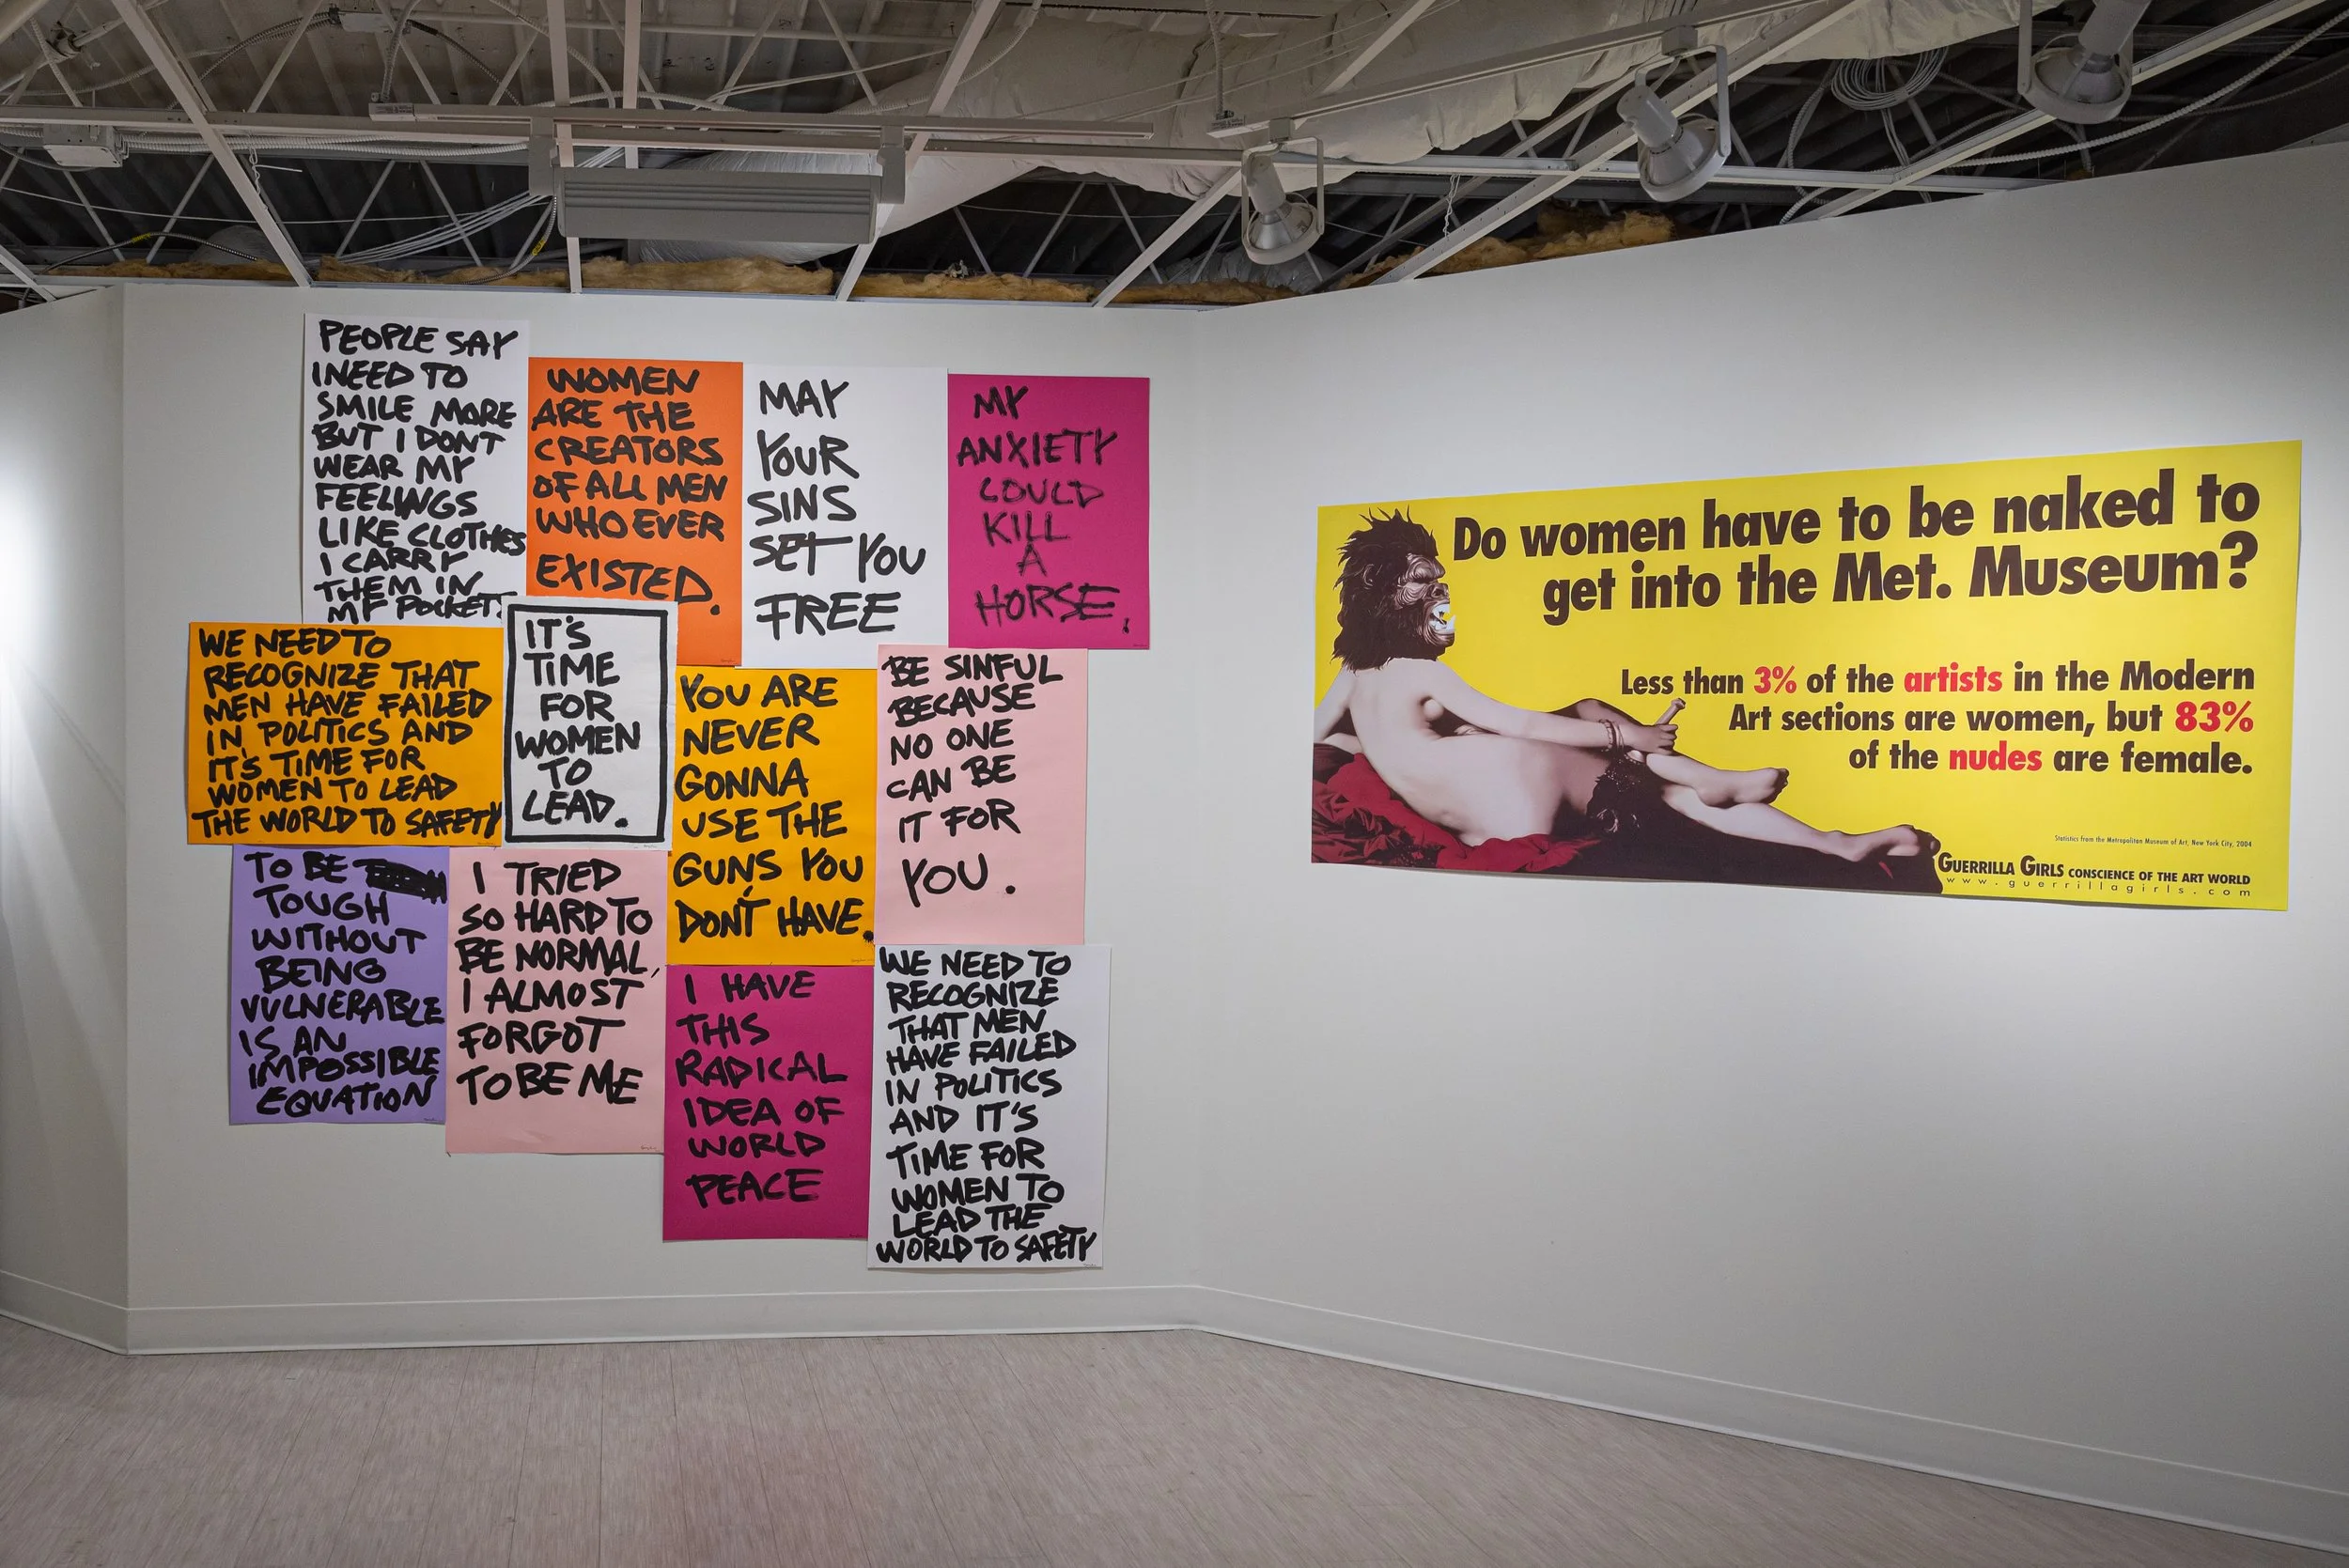 PEOPLE SAY
I NEED TO
SMILE MORE
BUT I DONT
WEAR MY
FEELINGS
LIKE CLOTHES
I CARRY
THEM IN
MY POCKETS
WOMEN
ARE THE
CREATORS
OF ALL MEN
WHO EVER
EXISTED.
MAY
YOUR
SINS
SET YOU
FREE
MY
ANXIETY
COULD
KILL
A
HORSE.
WE NEED TO
RECOGNIZE THAT
MEN HAVE FAILED
IN POLITICS AND
IT'S TIME FOR
WOMEN TO LEAD
THE WORLD TO SAFETY
IT'S
TIME
FOR
WOMEN
TO
LEAD.
YOU ARE
NEVER
GONNA
USE THE
GUNS YOU
DON'T HAVE.
BE SINFUL
BECAUSE
NO ONE
CAN BE
IT FOR
YOU.
TO BE
TOUGH
WITHOUT
BEING
VULNERABLE
IS AN
IMPOSSIBLE
EQUATION
I TRIED
SO HARD TO
BE NORMAL,
I ALMOST
FORGOT
TO BE ME
I HAVE
THIS
RADICAL
IDEA OF
WORLD
PEACE
WE NEED TO
RECOGNIZE
THAT MEN
HAVE FAILED
IN POLITICS
AND IT'S
TIME FOR
WOMEN TO
LEAD THE
WORLD TO SAFETY
Do women have to be naked to
get into the Met. Museum?
Less than 3% of the artists in the Modern
Art sections are women, but 83%
of the nudes are female.
Statistics from the Metropolitan Museum of Art, New York City, 2004
GUERRILLA GIRLS CONSCIENCE OF THE ART WORLD
www.guerrillagirls.com